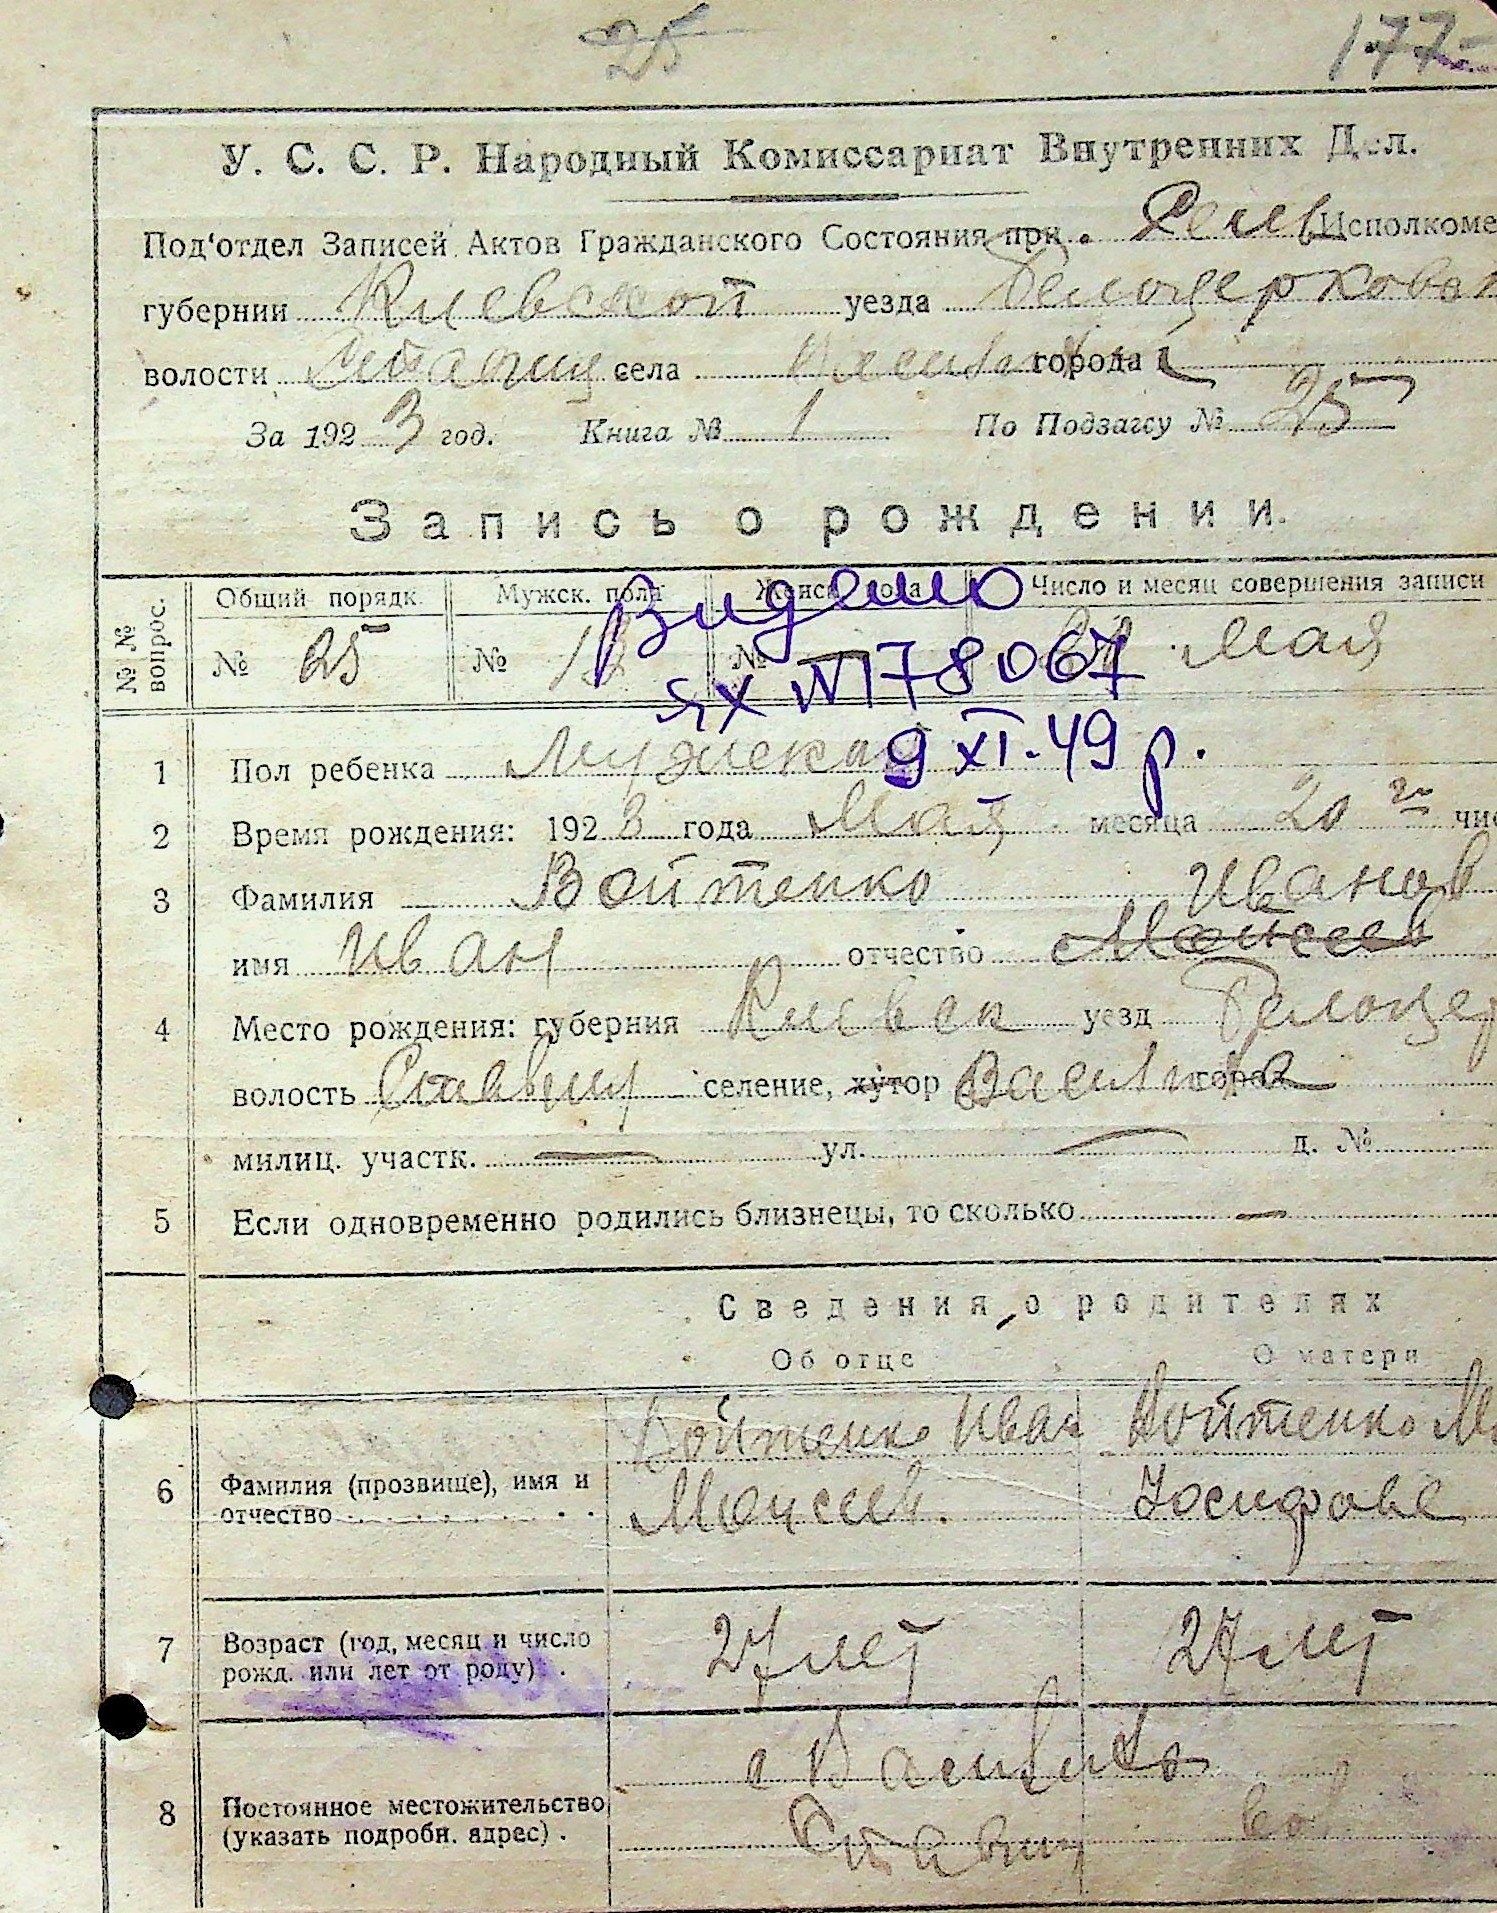 25
177
У. С. С. Р. Народный Комиссариат Внутренних Дел.
Под‘отдел Записей Актов Гражданского Состояния при Исполкоме
губернии Киевской уезда Белоцерковск
волости села города
За 1923 год. Книга № 1 По Подзагсу № 25
Запись о рождении.
№№ вопрос. Общий порядк. Мужск. пола Женск. пола Число и месяц совершения записи
№ 25 № 13 № — Мая
Видано
ЯХ №178067
9 XI-49 р.
1 Пол ребенка Мужской
2 Время рождения: 1923 года Мая месяца 20 го чис
3 Фамилия Войтенко Иванов
имя Иван отчество Моисеев
4 Место рождения: губерния Киевск уезд Белоцер
волость Ставищ селение, хутор город
милиц. участк. — ул. — д. №
5 Если одновременно родились близнецы, то сколько —
Сведения о родителях
Об отце О матери
Войтенко Иван Войтенко М
6 Фамилия (прозвище), имя и отчество Моисеев. Иосифова
7 Возраст (год, месяц и число рожд. или лет от роду) 27 лет 27 лет
8 Постоянное местожительство (указать подробн. адрес) с
Ставищ вол